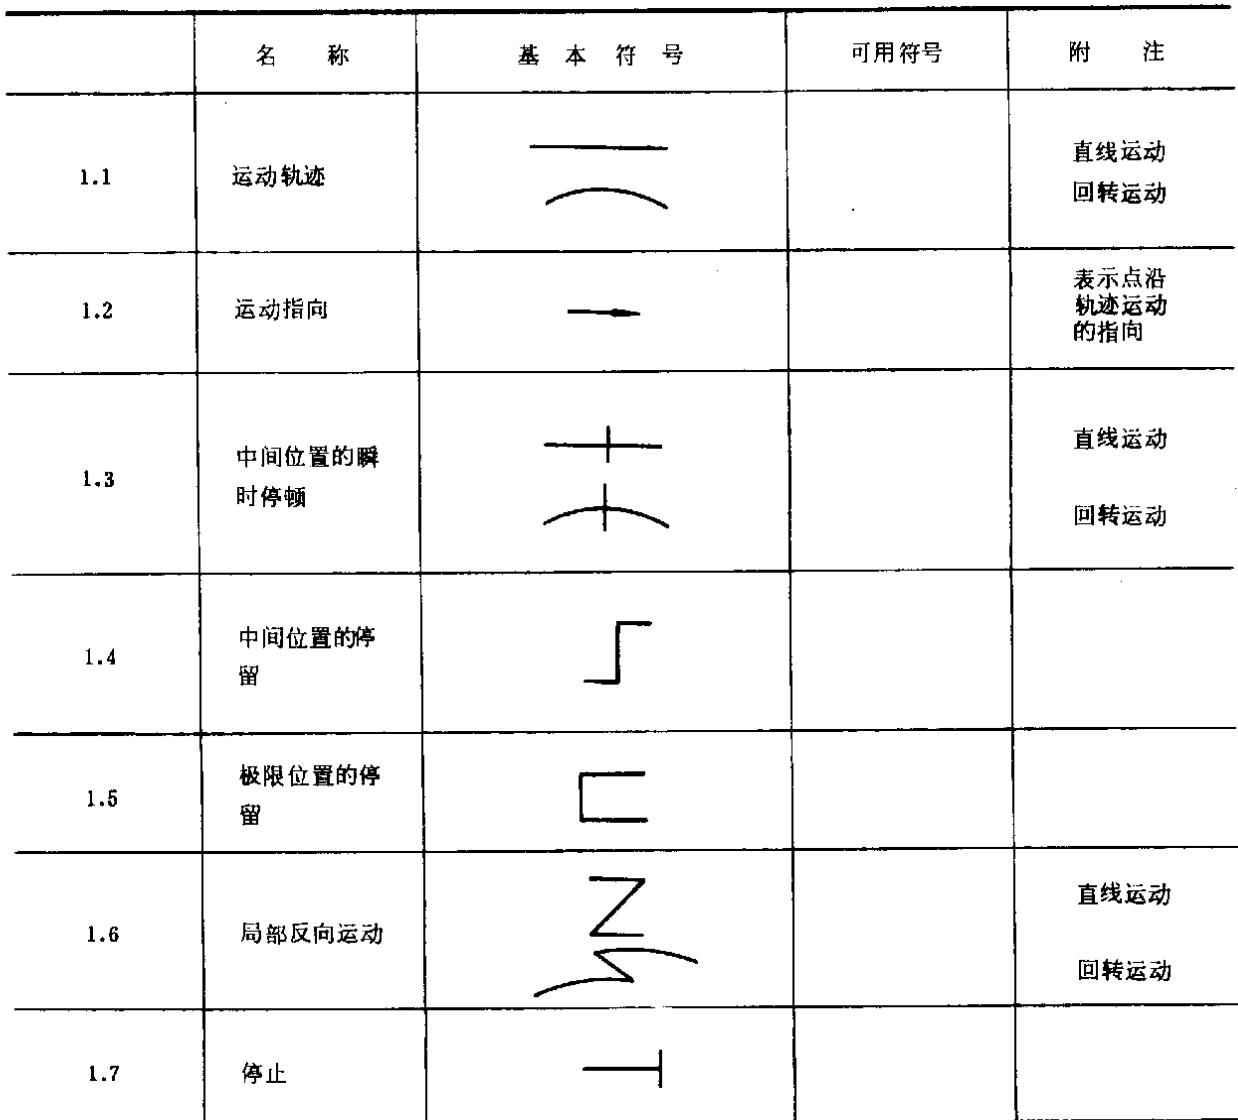 名 称 基 本 符 号 可用符号 附 注
1.1 运动轨迹 直线运动
回转运动
1.2 运动指向 表示点沿
轨迹运动
的指向
1.3 中间位置的瞬
时停顿 直线运动
回转运动
1.4 中间位置的停
留
1.5 极限位置的停
留
1.6 局部反向运动 直线运动
回转运动
1.7 停止